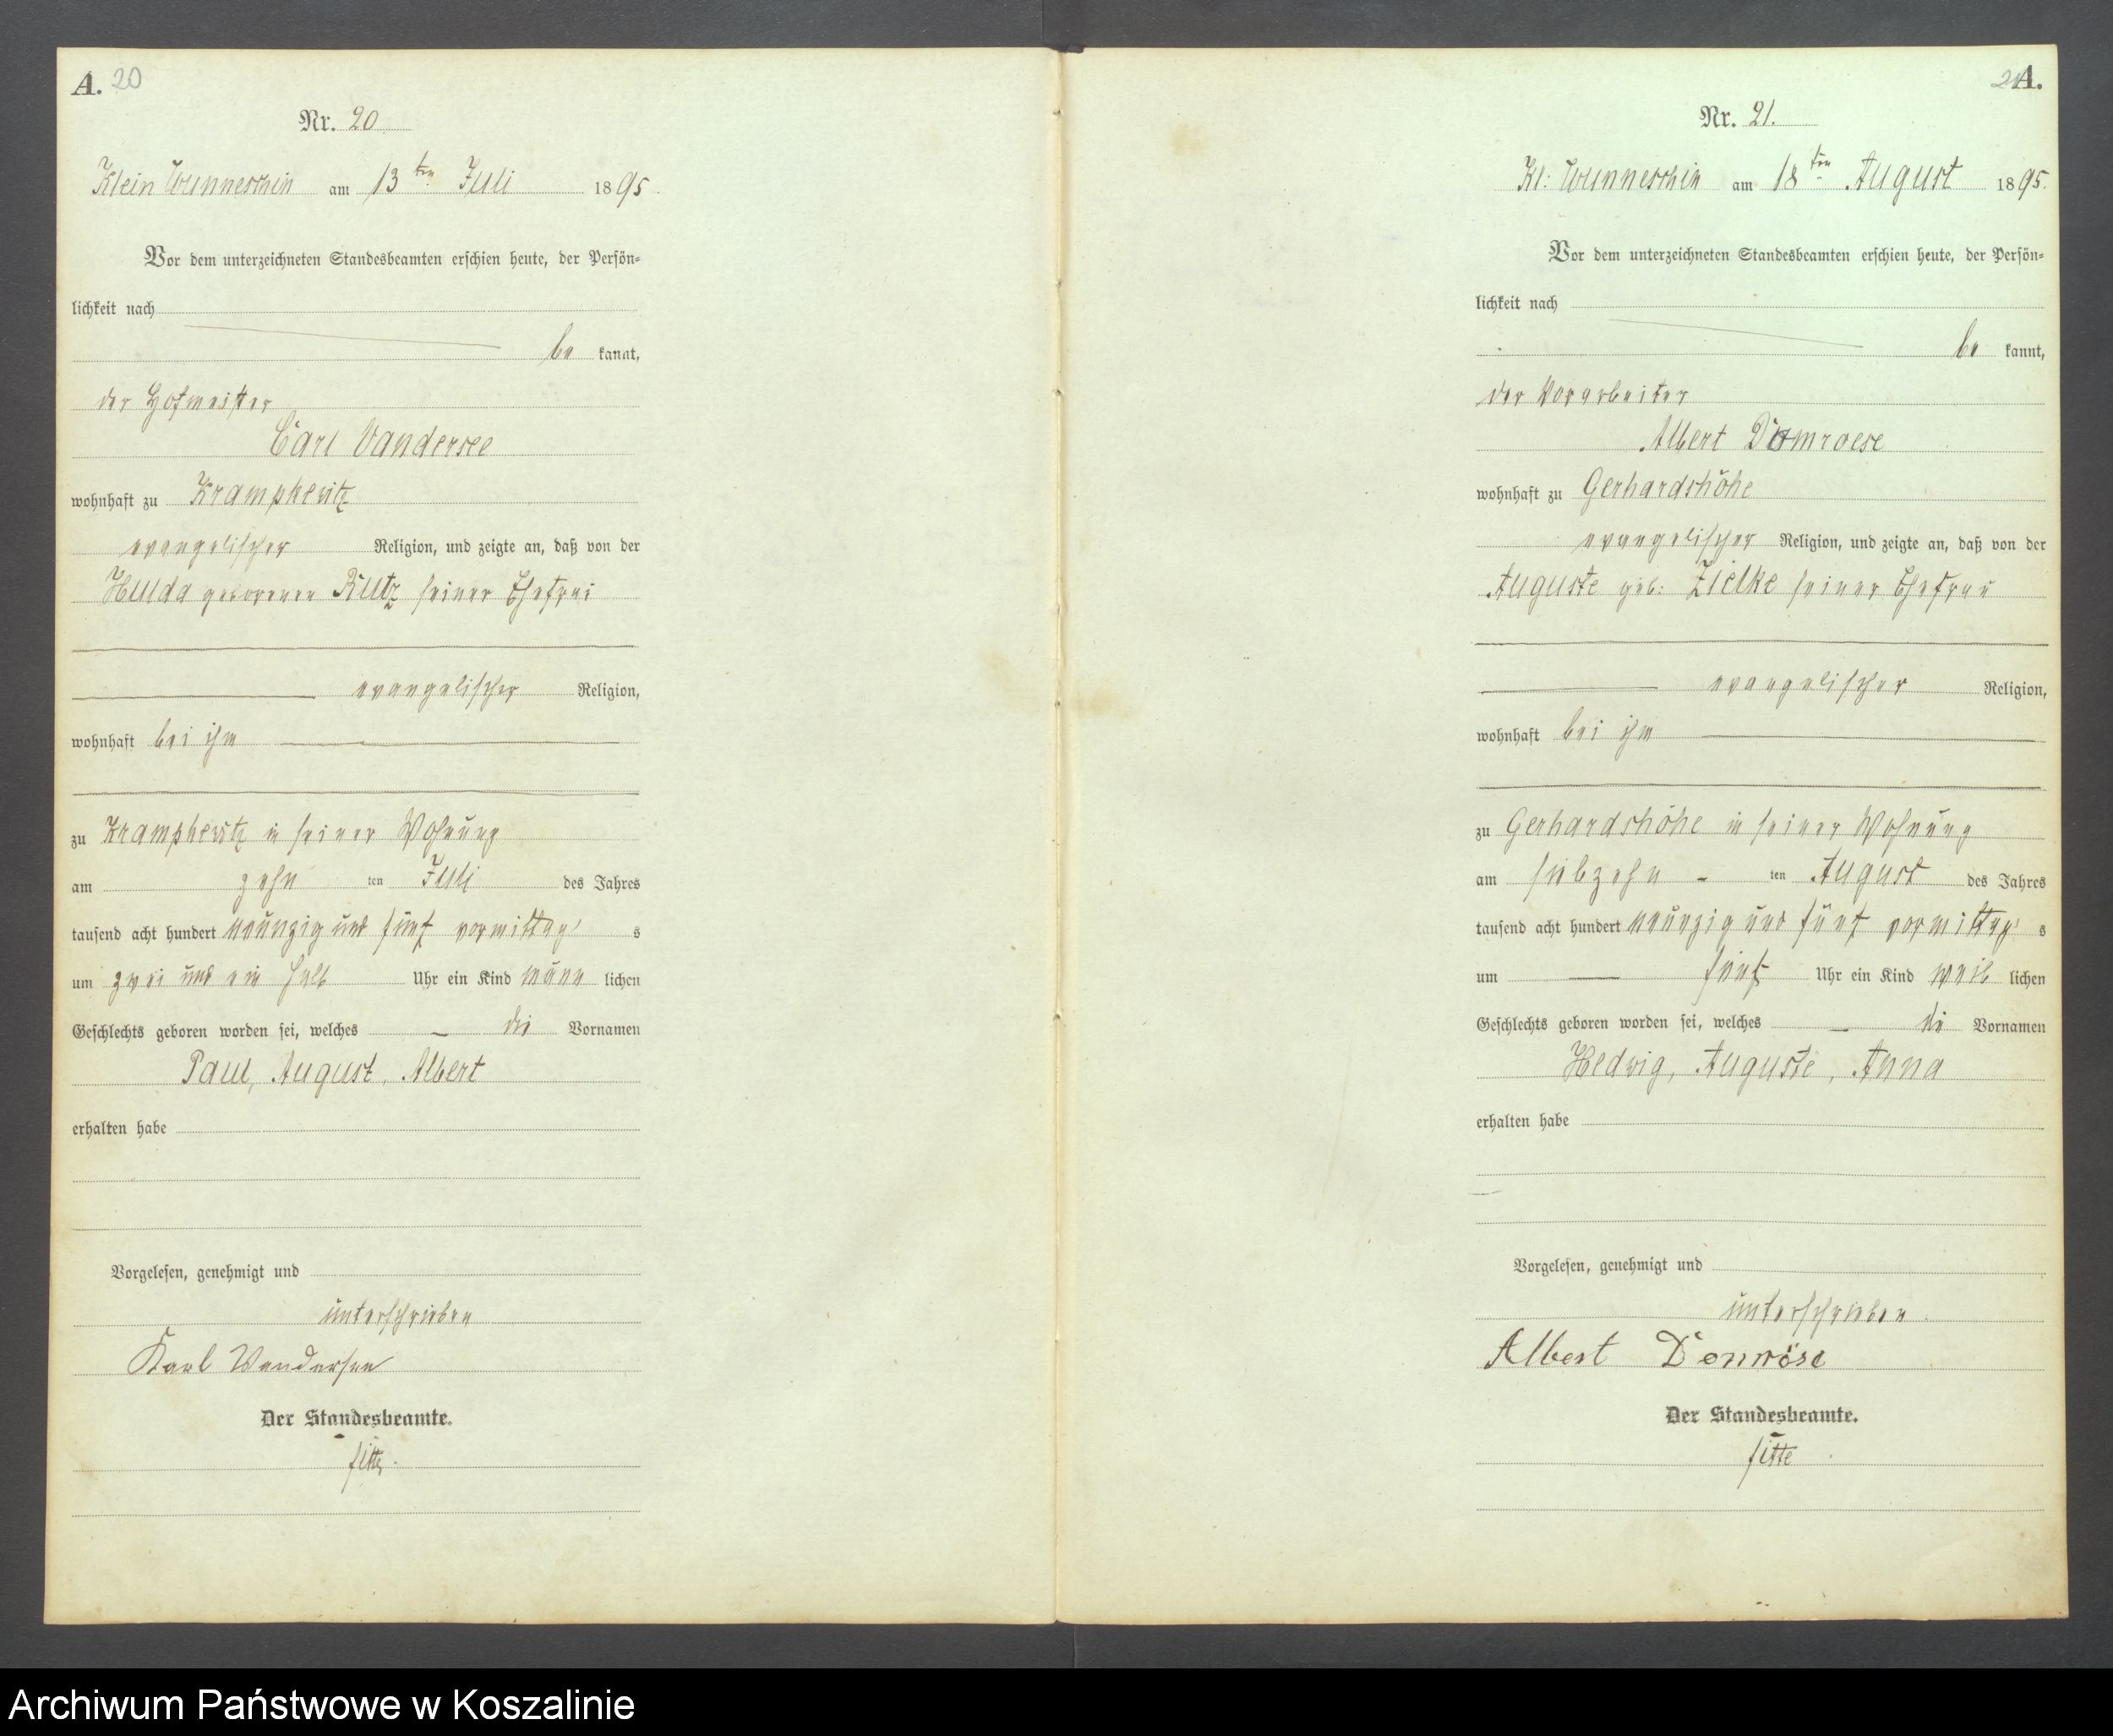 A. 20
Nr. 20
Klein Wunneschin am 13ten Juli 1895.
Vor dem unterzeichneten Standesbeamten erschien heute, der Persön-
lichkeit nach
be kannt,
der Hofmeister
Carl Vandersee
wohnhaft zu Krampkewitz
evangelischer Religion, und zeigte an, daß von der
Hulda geborenen Rutz seiner Ehefrau
evangelischer Religion,
wohnhaft bei ihm
zu Krampkewitz in seiner Wohnung
am zehn ten Juli des Jahres
tausend acht hundert neunzig und fünf vormittag s
um zwei und ein halb Uhr ein Kind männ lichen
Geschlechts geboren worden sei, welches die Vornamen
Paul, August, Albert
erhalten habe
Vorgelesen, genehmigt und
unterschrieben
Karl Vandersee
Der Standesbeamte.
21 A.
Nr. 21.
Kl: Wunneschin am 18ten August 1895.
Vor dem unterzeichneten Standesbeamten erschien heute, der Persön-
lichkeit nach
be kannt,
der Vorarbeiter
Albert Domroese
wohnhaft zu Gerhardshöhe
evangelischer Religion, und zeigte an, daß von der
Auguste geb: Zielke seiner Ehefrau
evangelischer Religion,
wohnhaft bei ihm
zu Gerhardshöhe in seiner Wohnung
am siebzehn - ten August des Jahres
tausend acht hundert neunzig und fünf vormittag s
um fünf Uhr ein Kind weib lichen
Geschlechts geboren worden sei, welches die Vornamen
Hedwig, Auguste, Anna
erhalten habe
Vorgelesen, genehmigt und
unterschrieben.
Albert Domröse
Der Standesbeamte.
Archiwum Państwowe w Koszalinie